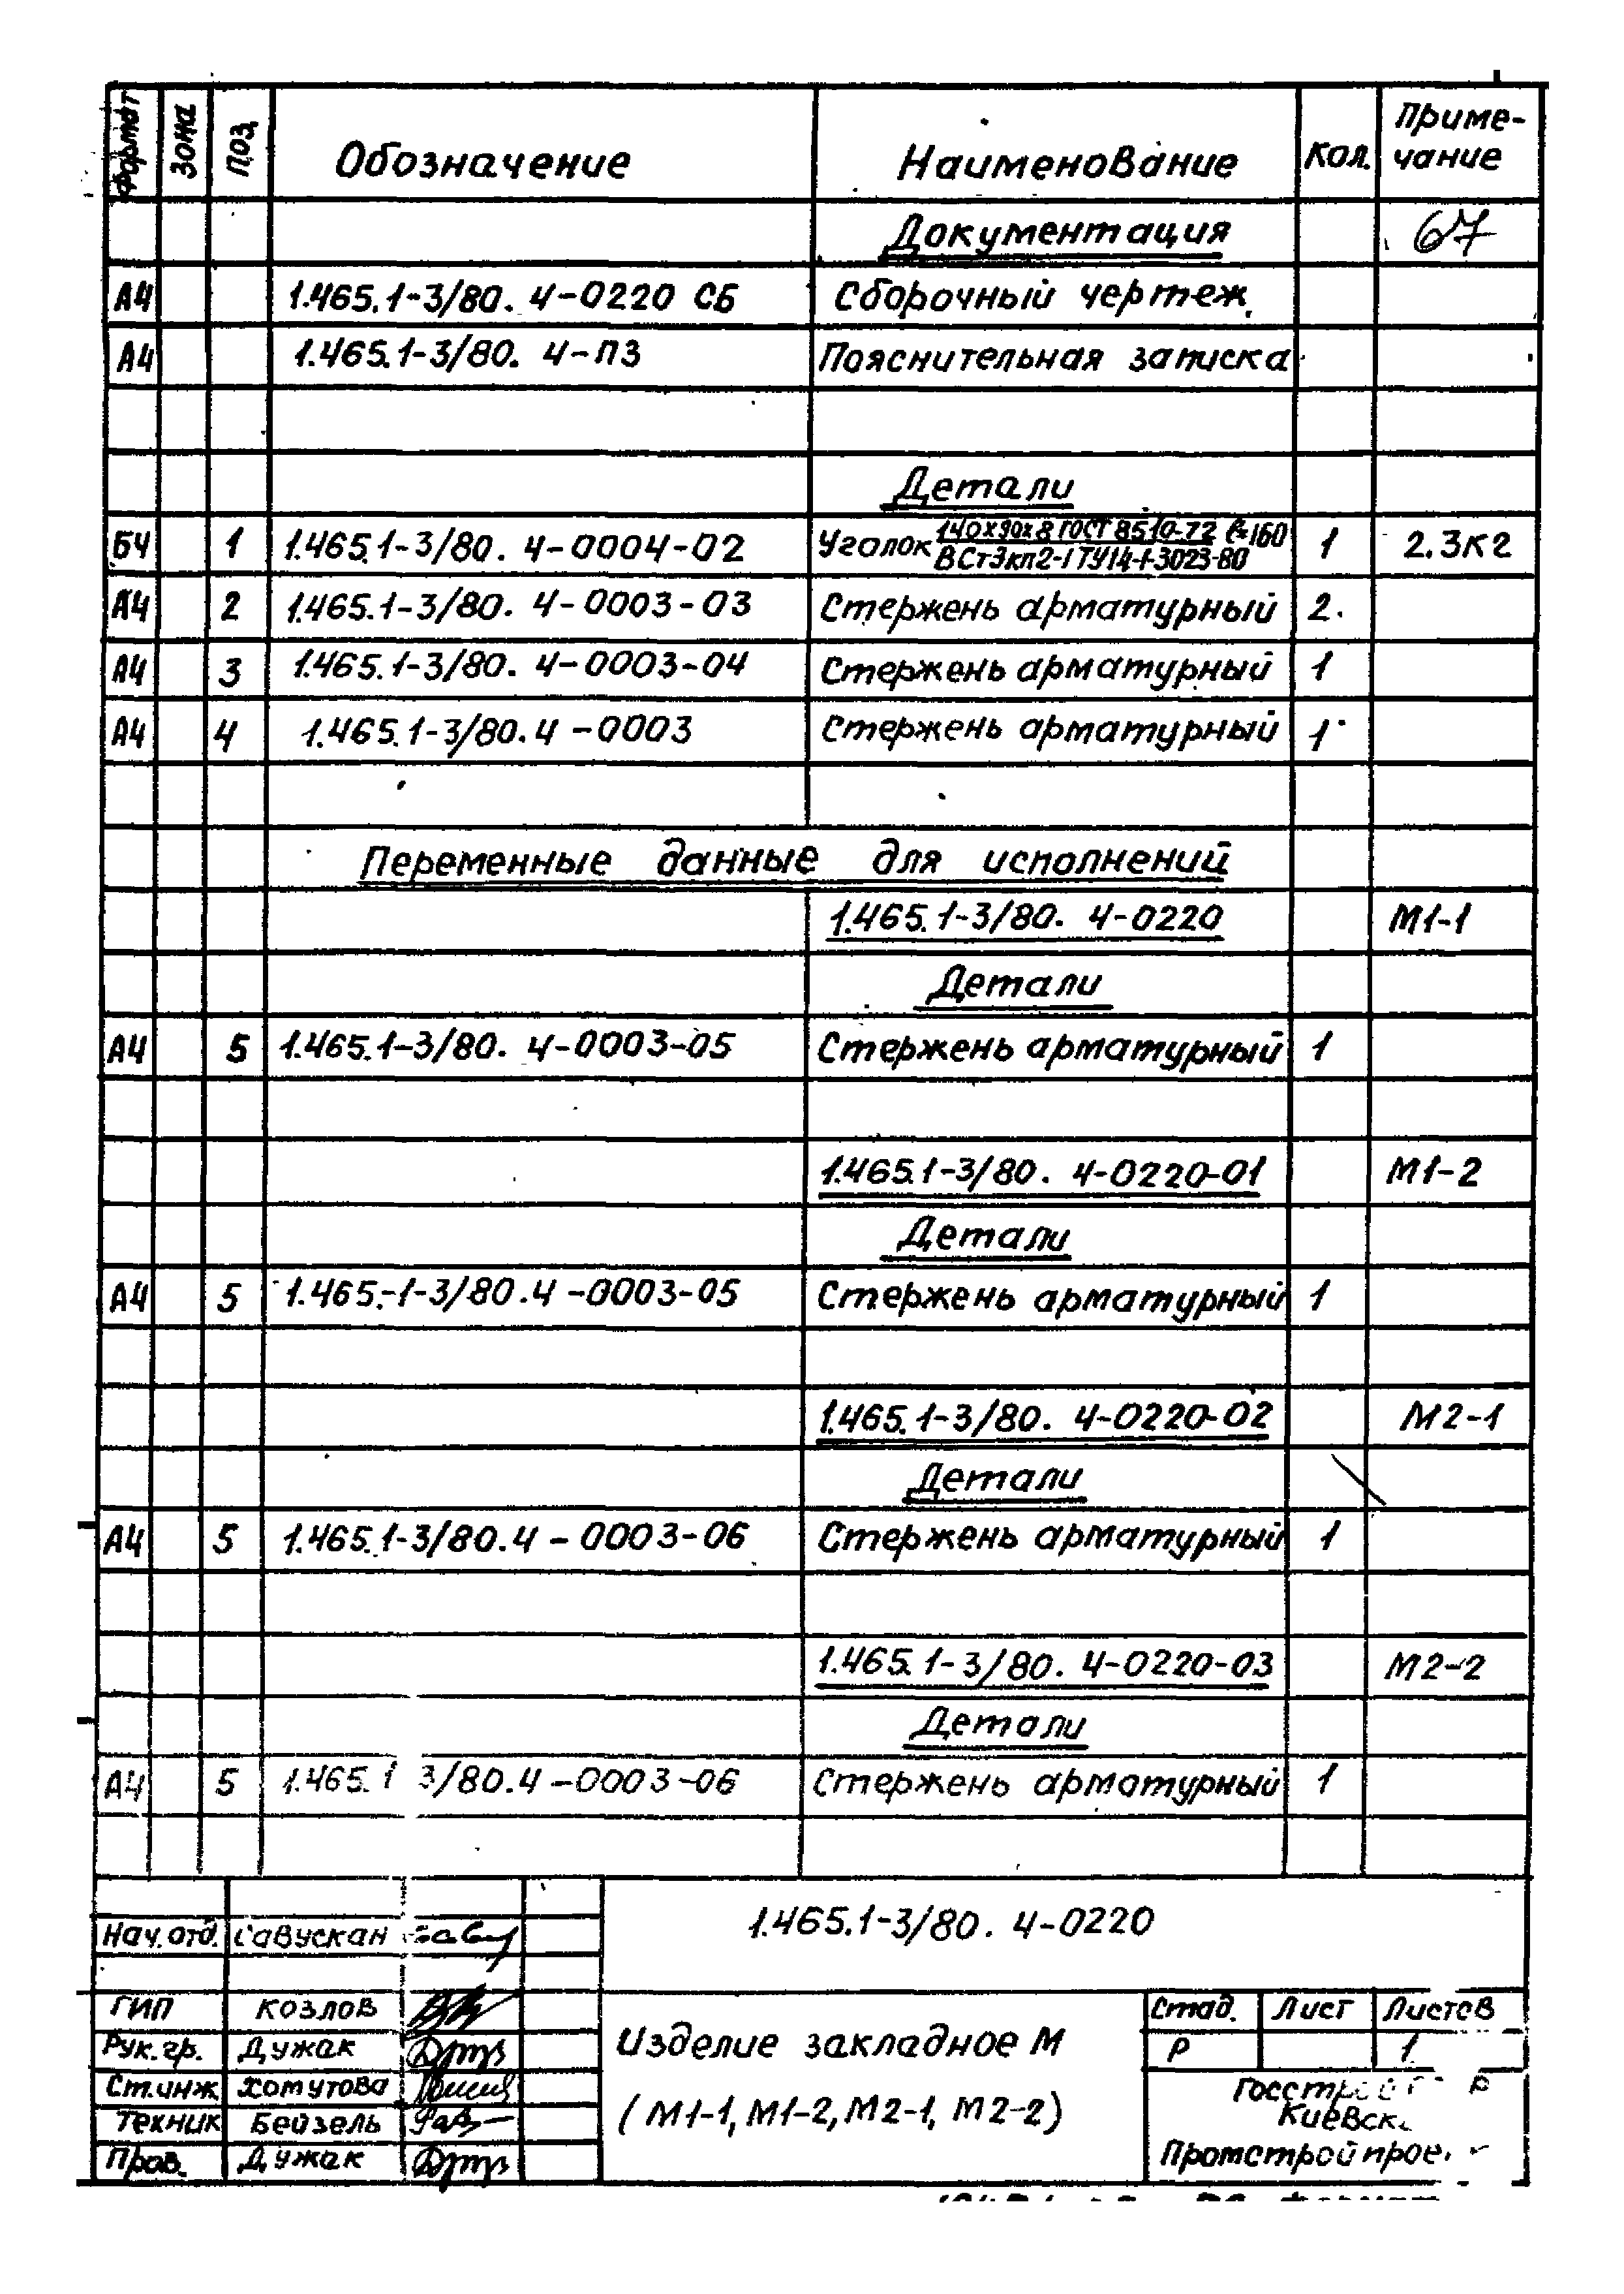 Формат Зона Поз. Обозначение Наименование Кол. Приме-
чание
Документация 67
А4 1.465.1-3/80. 4-0220 СБ Сборочный чертеж
А4 1.465.1-3/80. 4-ПЗ Пояснительная записка
Детали
БЧ 1 1.465.1-3/80. 4-0004-02 Уголок 140х90х8 ГОСТ 8510-72 ℓ=160 1 2.3кг
ВСт3кп2-1 ТУ14-1-3023-80
А4 2 1.465.1-3/80. 4-0003-03 Стержень арматурный 2.
А4 3 1.465.1-3/80. 4-0003-04 Стержень арматурный 1
А4 4 1.465.1-3/80.4-0003 Стержень арматурный 1
Переменные данные для исполнений
1.465.1-3/80. 4-0220 М1-1
Детали
А4 5 1.465.1-3/80. 4-0003-05 Стержень арматурный 1
1.465.1-3/80. 4-0220-01 М1-2
Детали
А4 5 1.465.-1-3/80.4-0003-05 Стержень арматурный 1
1.465.1-3/80. 4-0220-02 М2-1
Детали
А4 5 1.465.1-3/80.4-0003-06 Стержень арматурный 1
1.465.1-3/80. 4-0220-03 М2-2
Детали
А4 5 1.465.1 3/80.4-0003-06 Стержень арматурный 1
1.465.1-3/80. 4-0220
Нач.отд. Савускан
ГИП Козлов
Рук.гр. Дужак
Ст.инж. Хомутова
Техник Бейзель
Пров. Дужак
Изделие закладное М
(М1-1, М1-2, М2-1, М2-2)
Стад. Лист Листов
Р 1
Госстрой
Киевск
Промстройпрое